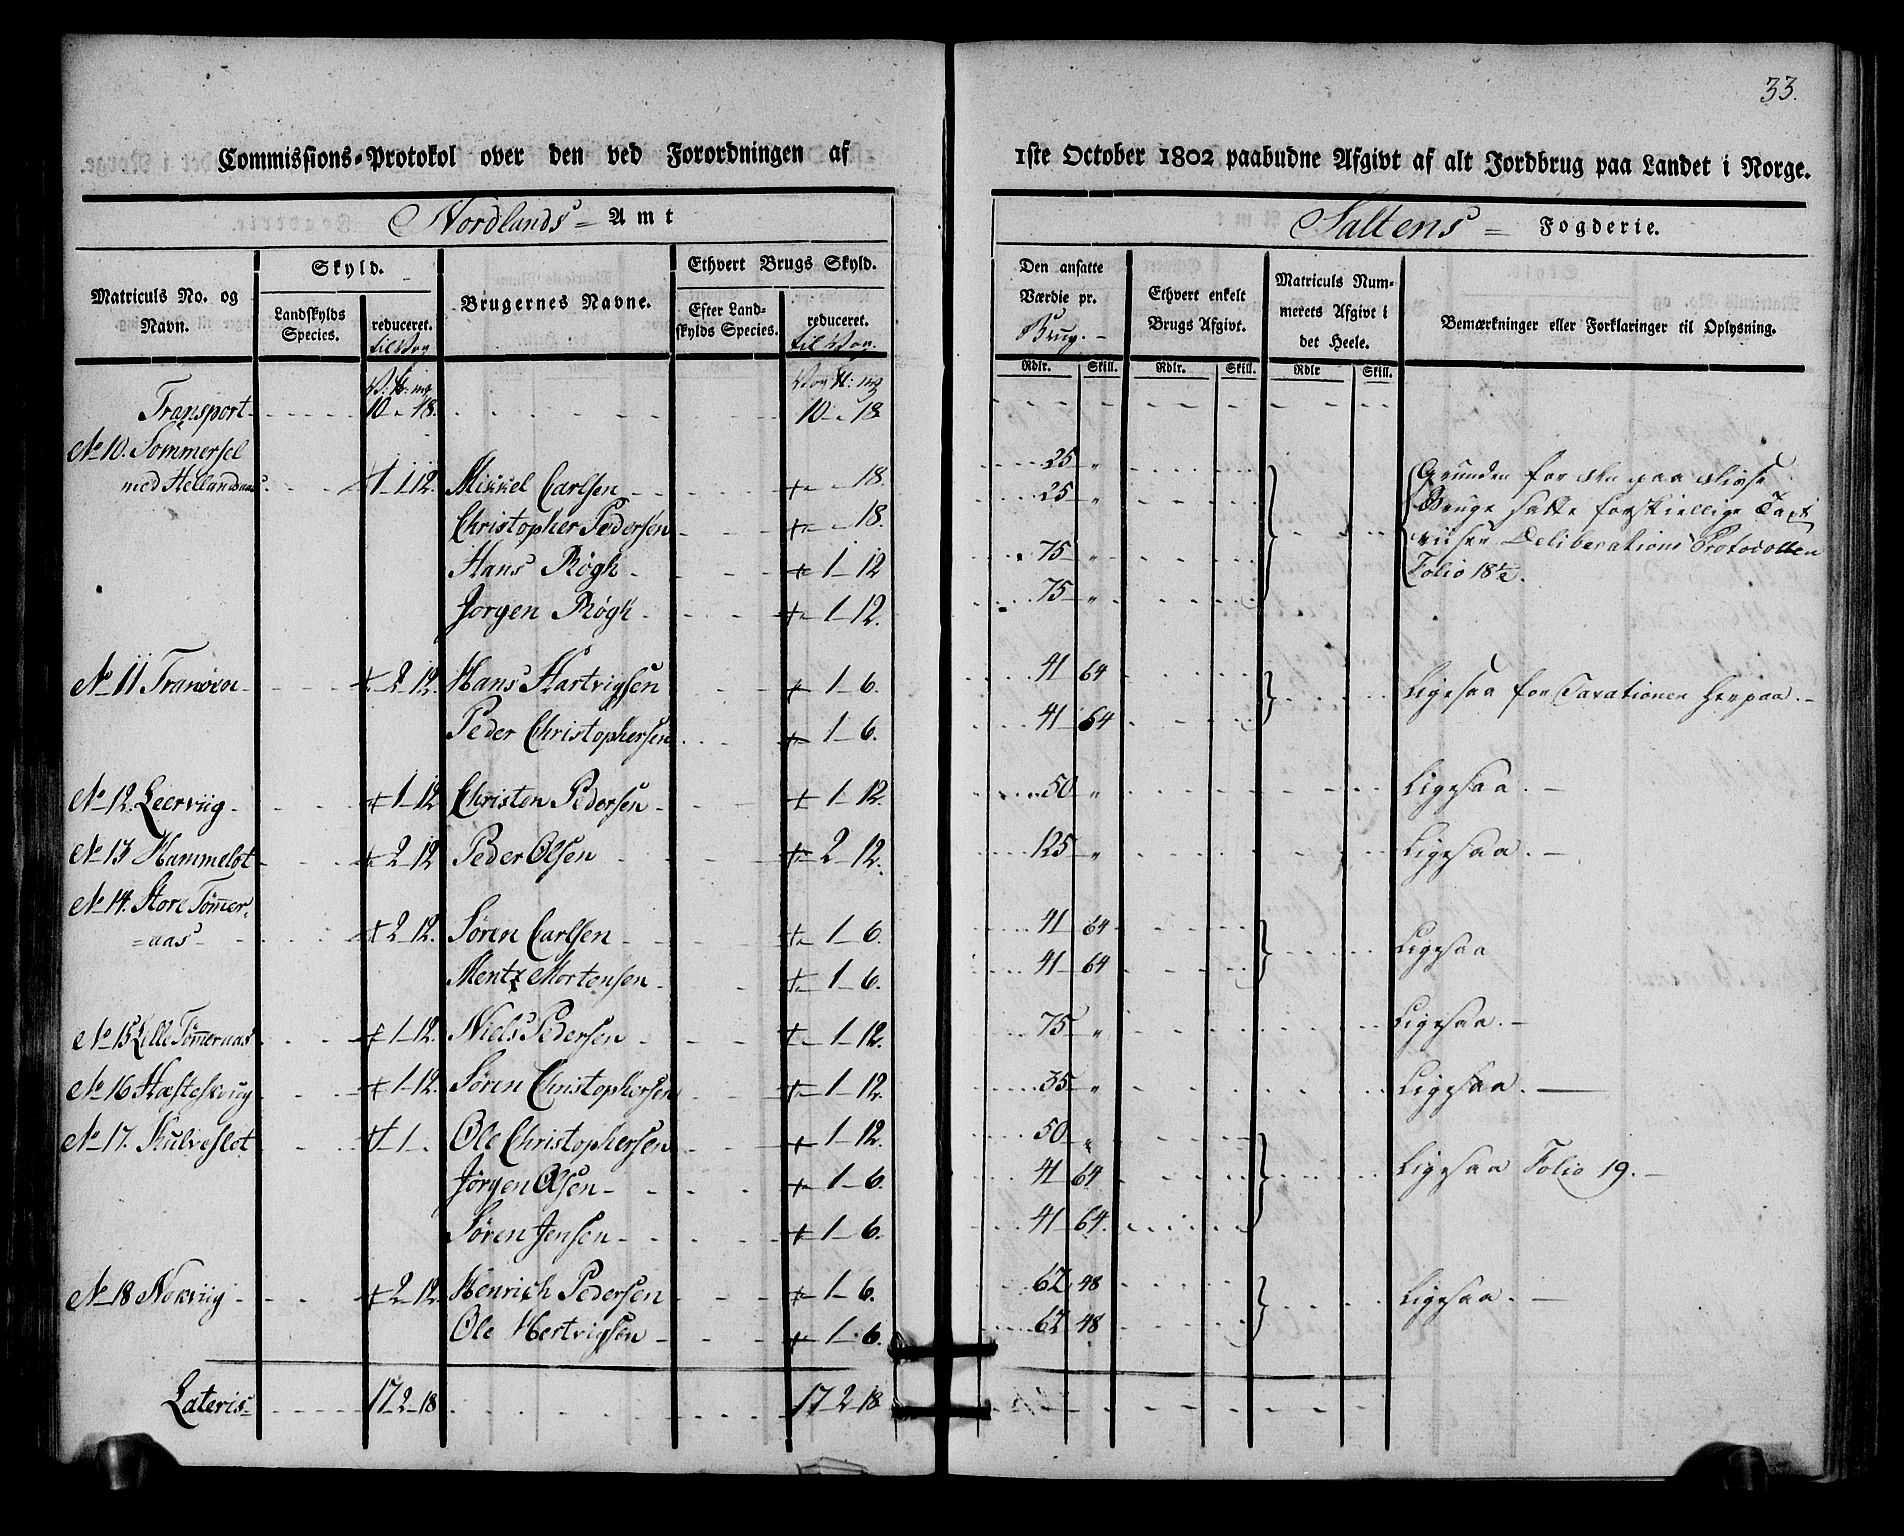 33.
Commissions-Protokol over den ved Forordningen af
1ste October 1802 paabudne Afgivt af alt Jordbrug paa Landet i Norge.
Nordlands = Amt
Saltens = Fogderie.
Matriculs No. og Navn.
Skyld.
Landskylds Species.
reduceret. til Vog
Brugernes Navne.
Ethvert Brugs Skyld.
Efter Landskylds Species.
reduceret. til Vog.
Den ansatte Værdie pr. Brug.
Ethvert enkelt Brugs Afgivt.
Matriculs Nummerets Afgivt i det Heele.
Bemærkninger eller Forklaringer til Oplysning.
Rdlr. Skill. Rdlr. Skill. Rdlr Skill.
Transport 10 „ 18. 10 „ 18
No 10. Sommersel
med Hellandsnæs 1-1-12. Mikkel Carlsen „ 18. 25 „ Grunden for den paa disse
Christopher Pedersen „ 18. 25 „ Bruge satte forskiellige Taxt
Hans Røgh 1-12 75 „ viiser Deliberations Protocollen
Jørgen Røgh 1-12. 75 „ Folio 18½.
No 11 Tranøen 2-12. Hans Hartvigsen 1-6. 41 64 Ligesaa for Taxationen herpaa.
Peder Christophersen 1-6. 41 64
No 12. Leerviig 1-12 Christen Pedersen 1-12. 50 „ Ligesaa.
No 13 Hammelot 2-12 Peder Olsen 2-12. 125 „ Ligesaa.
No 14. Store Tømer-
=aas 2-12. Søren Carlsen 1-6. 41 64 Ligesaa
Mentz Mortensen 1-6. 41 64
No 15 Lille Tømeraas 1-12. Niels Pedersen 1-12. 75 „ Ligesaa.
No 16 Hæsteskoug 1-12. Søren Christophersen 1-12. 35 „ Ligesaa.
No 17. Kulveslot 1-1-. Ole Christophersen 1-12. 50 „ Ligesaa Folio 19.
Jørgen Olsen 1-6. 41 64
Søren Jensen 1-6. 41 64.
No 18 Nokviig 2-12 Henrich Pedersen 1-6. 62 48 Ligesaa.
Ole Hertvigsen 1-6. 62 48
Lateris 17-2-18 17-2-18